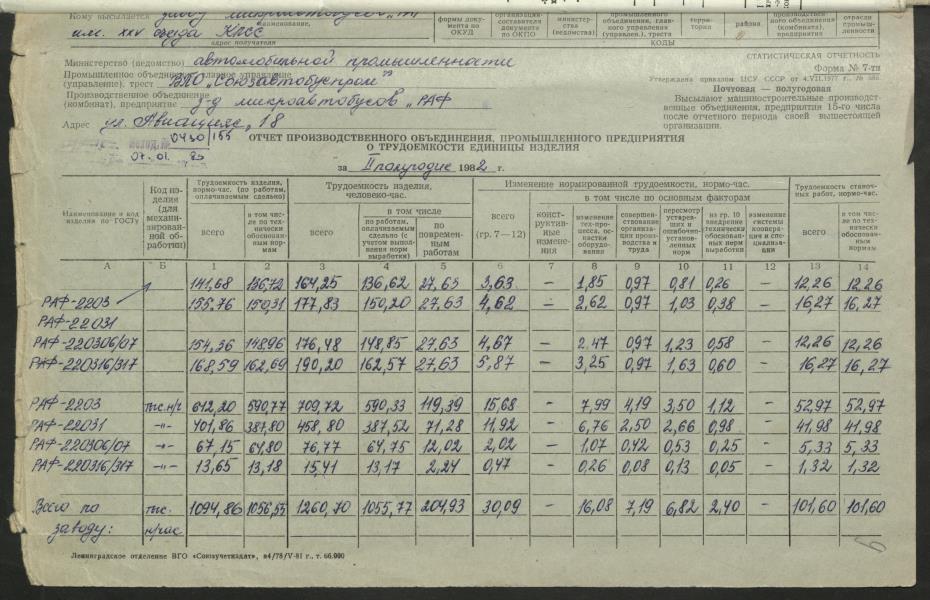 Кому высылается заводу микроавтобусов „РАФ"
наименование,
им. XXV съезда КПСС
адрес получателя
формы документа по ОКУД
организации-составителя документа по ОКПО
министерства (ведомства)
промышленного объединения, главного управления (управлен.), треста
территории
района
производственного объединения (комбината), предприятия
отрасли промышленности
КОДЫ
Министерство (ведомство) автомобильной промышленности
Промышленное объединение, главное управление
(управление), трест ВПО „Союзавтобуспром"
Производственное объединение
(комбинат), предприятие з-д микроавтобусов „РАФ
Адрес ул. Авиацияс, 18
0430/155
07. 01. 83
СТАТИСТИЧЕСКАЯ ОТЧЕТНОСТЬ
Форма № 7-тп
Утверждена приказом ЦСУ СССР от 4.VII.1977 г., №
Почтовая — полугодовая
Высылают машиностроительные производственные объединения, предприятия 15-го числа
после отчетного периода своей вышестоящей
организации.
ОТЧЕТ ПРОИЗВОДСТВЕННОГО ОБЪЕДИНЕНИЯ, ПРОМЫШЛЕННОГО ПРЕДПРИЯТИЯ
О ТРУДОЕМКОСТИ ЕДИНИЦЫ ИЗДЕЛИЯ
за II полугодие 1982 г.
Наименование и код изделия по ГОСТу
Код изделия (для механизированной обработки)
Трудоемкость изделия, нормо-час. (по работам, оплачиваемым сдельно)
всего
в том числе по технически обоснованным нормам
Трудоемкость изделия, человеко-час.
всего
в том числе
по работам, оплачиваемым сдельно (с учетом выполнения норм выработки)
по повременным работам
Изменение нормированной трудоемкости, нормо-час.
всего (гр. 7—12)
в том числе по основным факторам
конструктивные изменения
изменение тех-процесса, оснастки оборудования
совершенствование организации производства и труда
пересмотр устаревших и ошибочно установленных норм
из гр. 10 внедрение технически обоснованных норм выработки
изменение системы кооперации и специализации
Трудоемкость станочных работ, нормо-час.
всего
в том числе по технически обоснованным нормам
А Б 1 2 3 4 5 6 7 8 9 10 11 12 13 14
141,68 136,72 164,25 136,62 27,63 3,63 - 1,85 0,97 0,81 0,26 - 12,26 12,26
РАФ-2203 155,76 150,31 177,83 150,20 27,63 4,62 - 2,62 0,97 1,03 0,38 - 16,27 16,27
РАФ-22031
РАФ-220306/07 154,36 148,96 176,48 148,85 27,63 4,67 - 2,47 0,97 1,23 0,58 - 12,26 12,26
РАФ-220316/317 168,59 162,69 190,20 162,57 27,63 5,87 - 3,25 0,97 1,63 0,60 - 16,27 16,27
РАФ-2203 тыс.н/ч 612,20 590,77 709,72 590,33 119,39 15,68 - 7,99 4,19 3,50 1,12 - 52,97 52,97
РАФ-22031 -"- 401,86 387,80 458,80 387,52 71,28 11,92 - 6,76 2,50 2,66 0,98 - 41,98 41,98
РАФ-220306/07 -"- 67,15 64,80 76,77 64,75 12,02 2,02 - 1,07 0,42 0,53 0,25 - 5,33 5,33
РАФ-220316/317 -"- 13,65 13,18 15,41 13,17 2,24 0,47 - 0,26 0,08 0,13 0,05 - 1,32 1,32
Всего по тыс. 1094,86 1056,55 1260,70 1055,77 204,93 30,09 - 16,08 7,19 6,82 2,40 - 101,60 101,60
заводу: н/час
Ленинградское отделение ВГО «Союзучетиздат», в4/78/V-81 г., т. 66.000